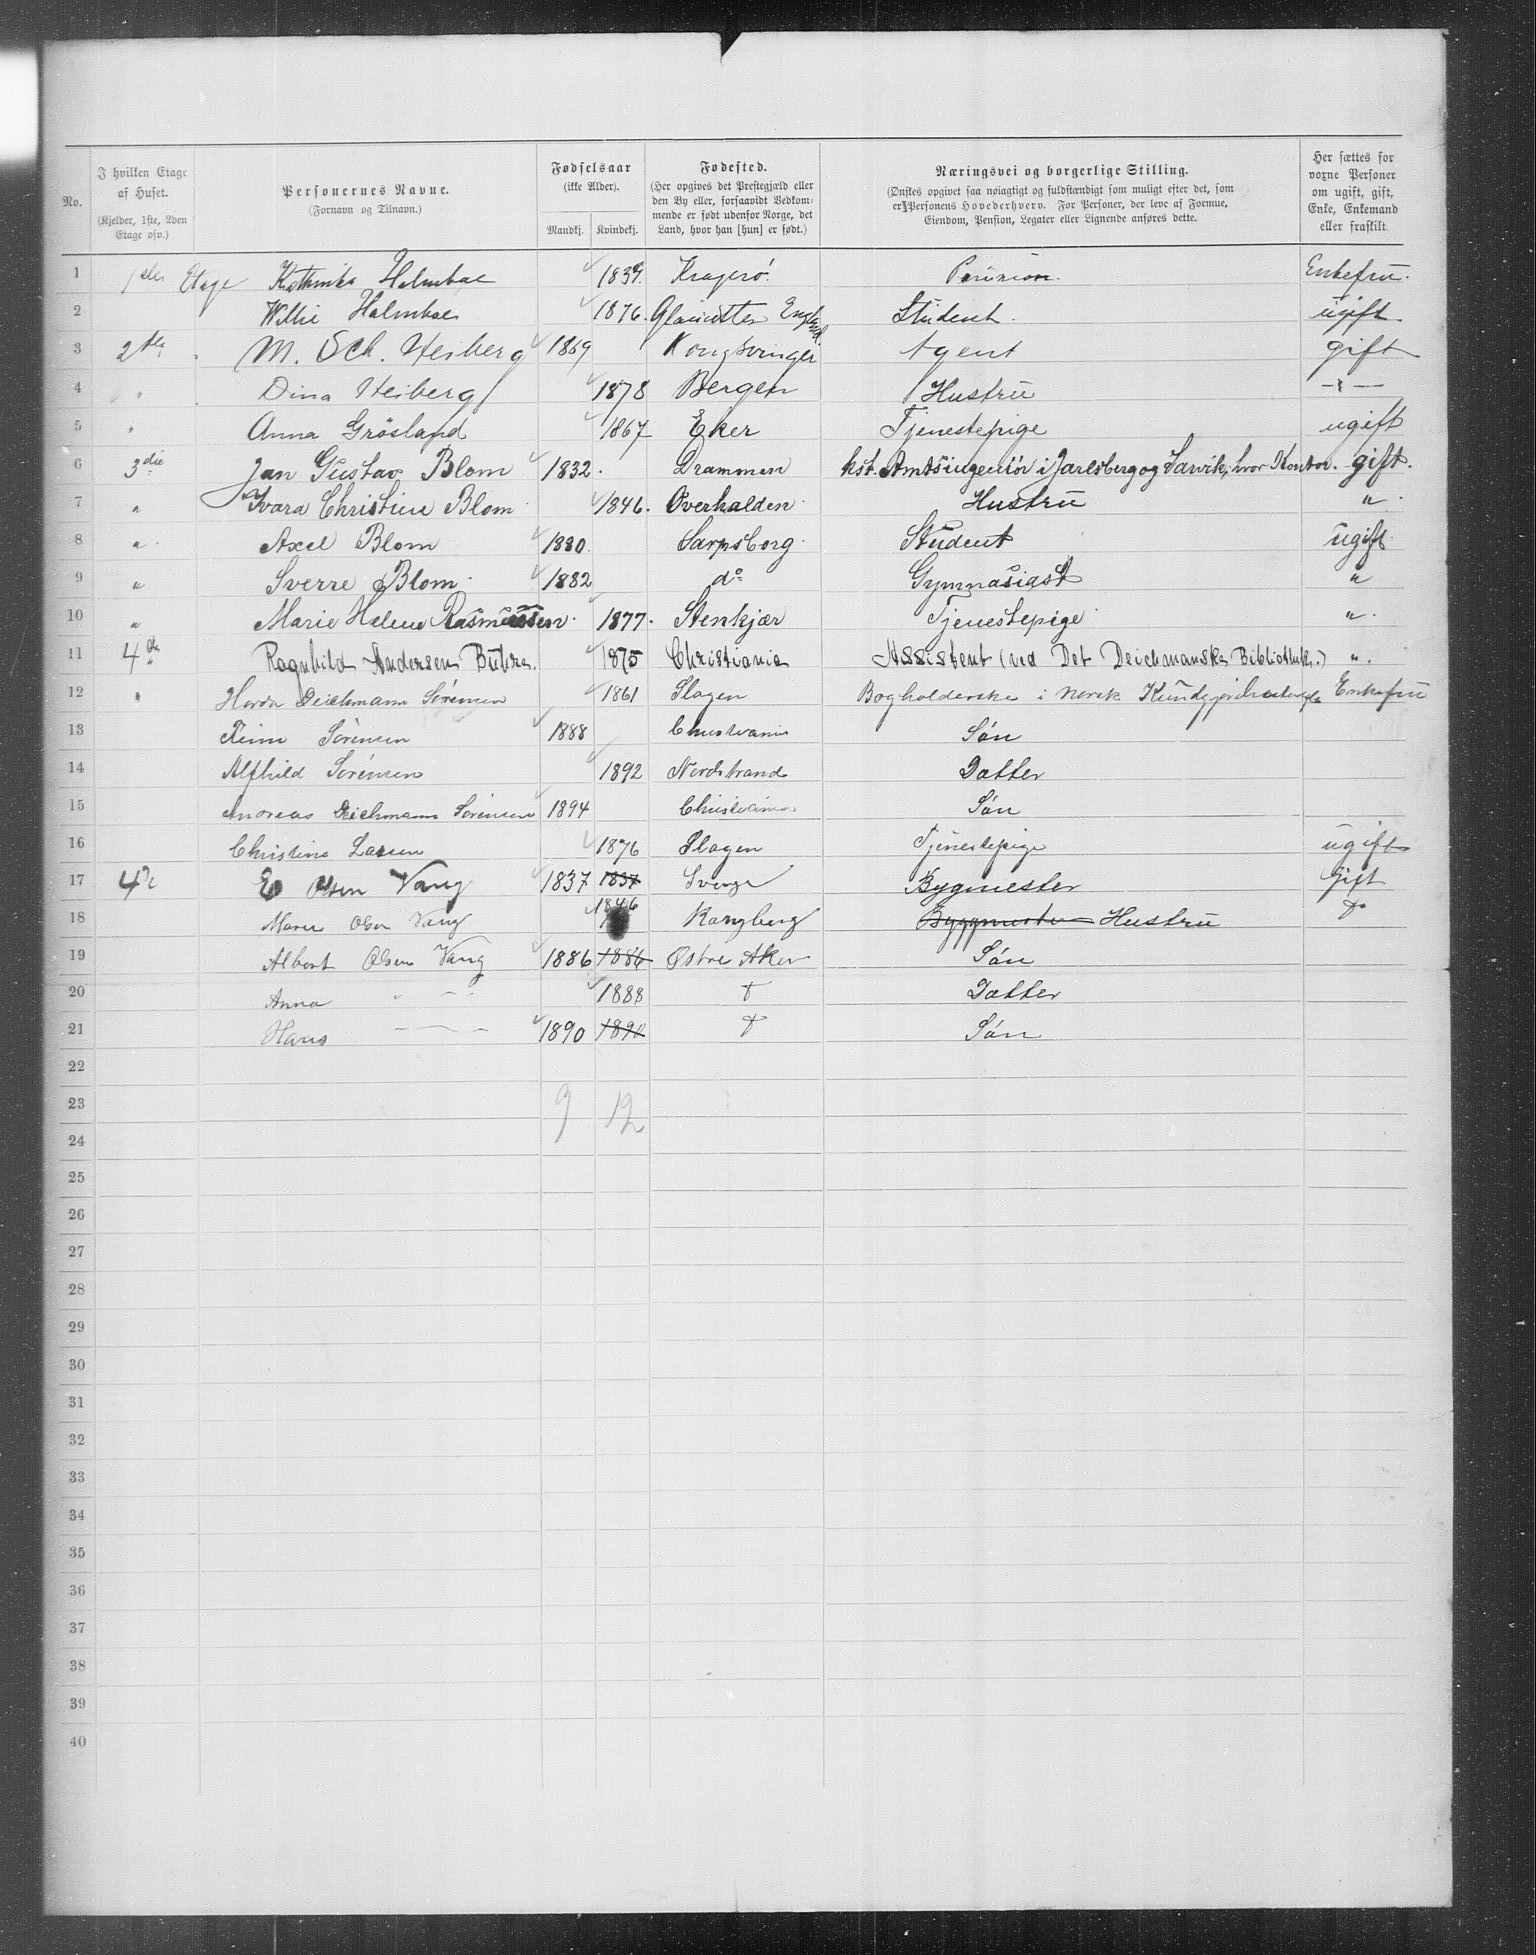 No. | I hvilken Etage af Huset. (Kjelder, 1ste, 2den Etage osv.) | Personernes Navne. (Fornavn og Tilnavn.) | Fødselsaar (ikke Alder). Mandkj. Kvindekj. | Fødested. (Her opgives det Prestegjæld eller den By eller, forsaavidt Vedkommende er født udenfor Norge, det Land, hvor han [hun] er født.) | Næringsvei og borgerlige Stilling. (Ønskes opgivet saa nøiagtigt og fuldstændigt som muligt efter det, som er Personens Hovederhverv. For Personer, der leve af Formue, Eiendom, Pension, Legater eller Lignende anføres dette. | Her sættes for voxne Personer om ugift, gift, Enke, Enkemand eller fraskilt.
1 Etage Holmboe 1839. Kragerø. Pension. Enkefru.
2 Willie Holmboe 1876. England. Student. ugift.
3 2den M. Sch. Heiberg 1869 Kongsvinger Agent gift
4 " Dina Heiberg 1878 Bergen Hustru -"-
5 " Anna Grösland 1867 Eker Tjenestepige ugift
6 3die Jan Gustav Blom 1832. Drammen kst. Amtsingeniör i Jarlsberg og Larvik, hvor Kontor. gift.
7 " Ivara Christine Blom 1846. Overhalden Hustru "
8 " Axel Blom 1880. Sarpsborg Student ugift
9 " Sverre Blom 1882 do Gymnasiast "
10 " Marie Helene Rasmussen 1877. Stenkjær Tjenestepige "
11 4de Ragnhild Andersen 1875 Christiania Assistent (ved Det Deichmanske Bibliothek.) "
12 " Deichmann Sörensen 1861 Slagen Bogholderske i Norsk Enkefru
13 Sörensen 1888 Christiania Sön
14 Alfhild Sörensen 1892 Nordstrand Datter
15 Andreas Deichmann Sörensen 1894 Christiania Sön
16 Christine Larsen 1876 Slagen Tjenestepige ugift
17 4de Olsen Vang 1837 1837 Sverge Bygmester Gift
18 Maren Olsen Vang 1846 Kongberg Byggmester Hustru do
19 Albert Olsen Vang 1886 1886 Østre Aker Sön
20 Anna " - 1888 do Datter
21 Hans - - 1890 1890 do Sön
22
23 9 12
24
25
26
27
28
29
30
31
32
33
34
35
36
37
38
39
40